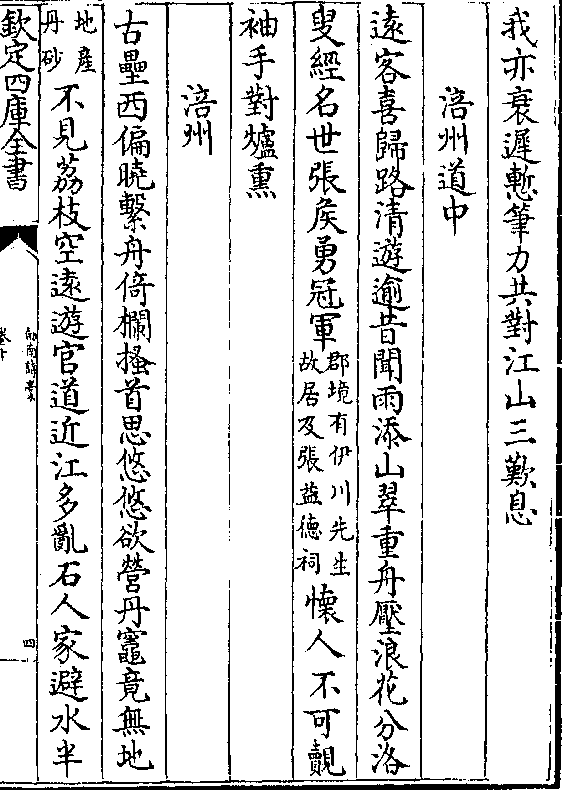 我亦衰遲慙筆力共對江山三歎息
涪州道中
遠客喜歸路清遊逾昔聞雨添山翠重舟壓浪花分洛
叟經名世張侯勇冠軍郡境有伊川先生故居及張益德祠懷人不可覿
袖手對爐熏
涪州
古壘西偏曉繫舟倚欄搔首思悠悠欲營丹竈竟無地
地產丹砂不見荔枝空遠遊官道近江多亂石人家避水半
欽定四庫全書
劍南詩藁
卷十
四